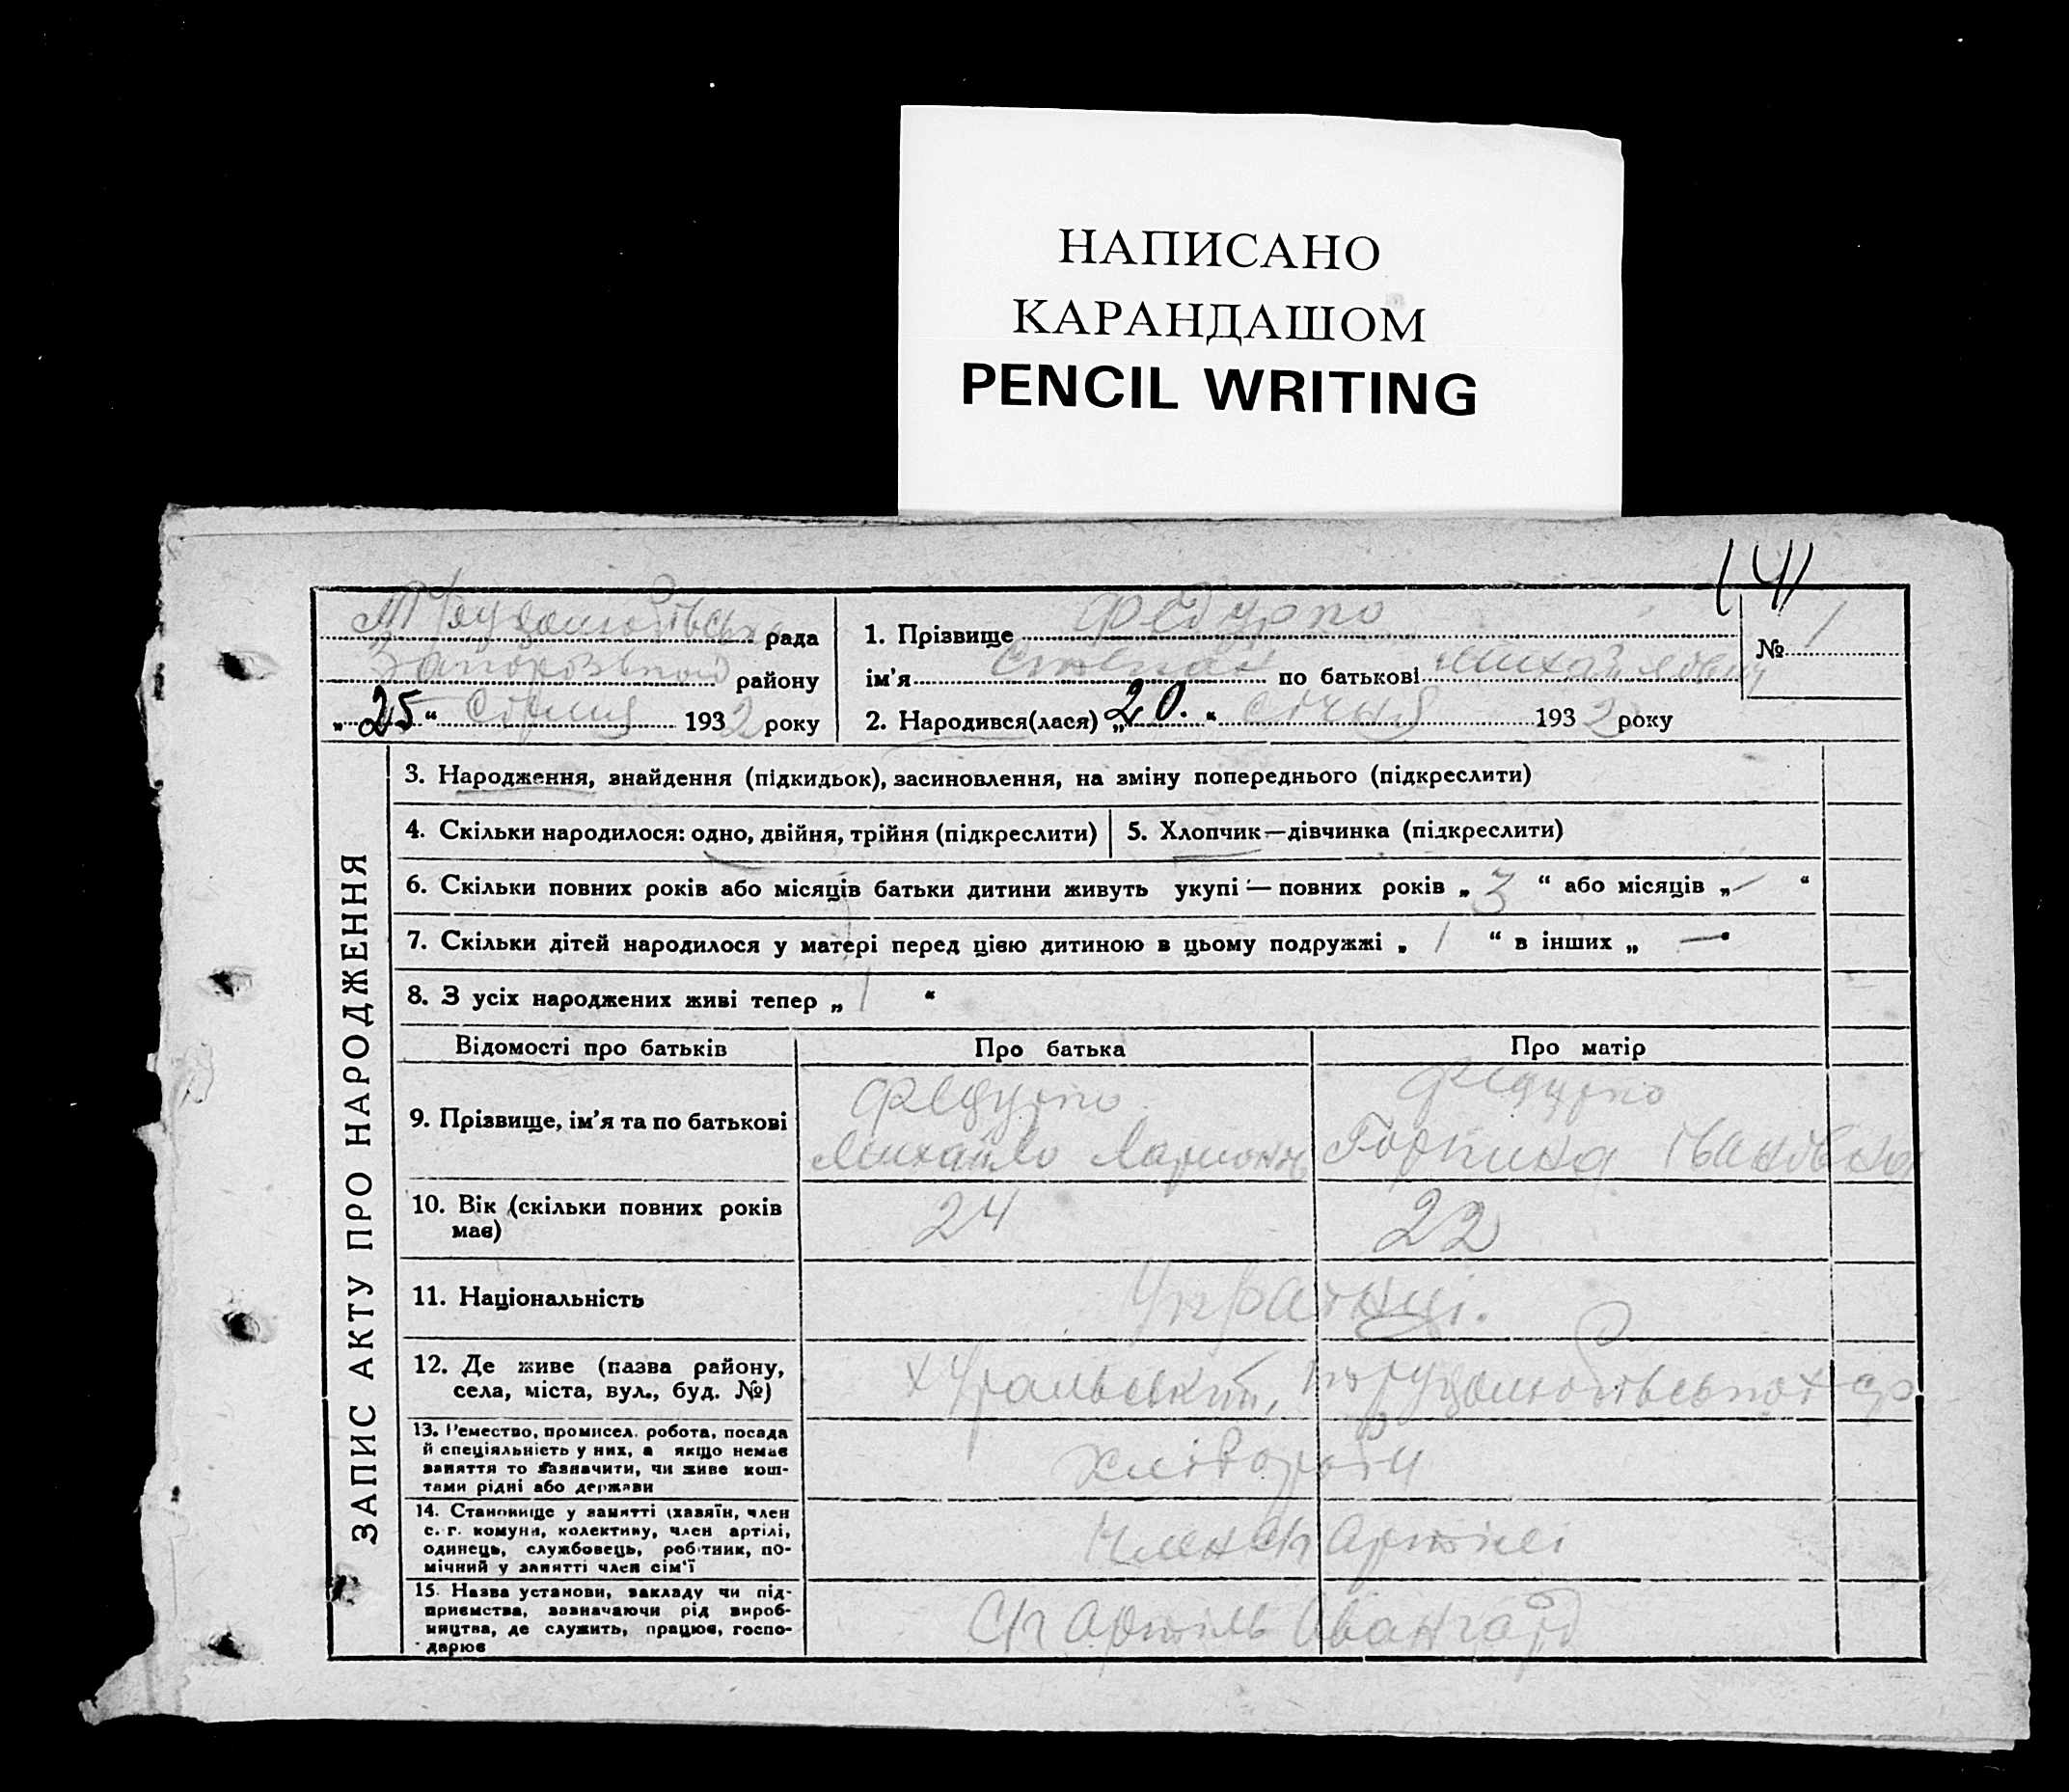 НАПИСАНО
КАРАНДАШОМ
PENCIL WRITING
141
Трудолюбівська рада
Запорозького району
„25“ Січня 1932 року
1. Прізвище Федурко
ім'я Степан по батькові Михайлович
№ 1
2. Народився(лася) „20.“ Січня 1932 року
ЗАПИС АКТУ ПРО НАРОДЖЕННЯ
3. Народження, знайдення (підкидьок), засиновлення, на зміну попереднього (підкреслити)
4. Скільки народилося: одно, двійня, трійня (підкреслити)
5. Хлопчик—дівчинка (підкреслити)
6. Скільки повних років або місяців батьки дитини живуть укупі — повних років „ 3 “ або місяців „ — “
7. Скільки дітей народилося у матері перед цією дитиною в цьому подружжі „ 1 “ в інших „ — “
8. З усіх народжених живі тепер „ 1 “
Відомості про батьків
Про батька
Про матір
9. Прізвище, ім'я та по батькові
Федурко
Михайло Ларионов
Федурко
Горпина Івановна
10. Вік (скільки повних років
має)
24
22
11. Національність
Українці.
12. Де живе (назва району,
села, міста, вул., буд. №)
х Уральський, Трудолюбівської ср
13. Ремество, промисел, робота, посада
й спеціяльність у них, а якщо немає
заняття то зазначити, чи живе кош-
тами рідні або держави
хлібороби
14. Становище у занятті (хазяїн, член
с.-г. комуни, колективу, член артілі,
одинець, службовець, робітник, по-
мічний у занятті член сім'ї
Член с/г Артілі
15. Назва установи, закладу чи під-
приємства, зазначаючи рід вироб-
ництва, де служить, працює, госпо-
дарює
С/г Артіль Авангард